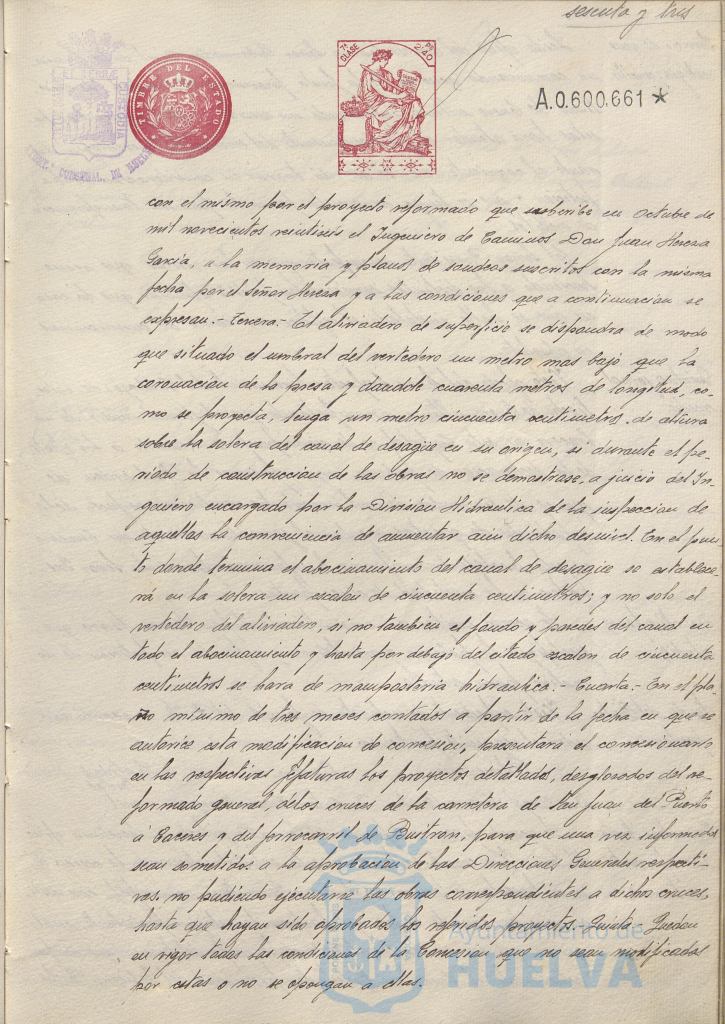 sesenta y tres
TIMBRE DEL ESTADO
7ª CLASE
Pts 2'40
A.0.600.661 ★
CUSTODIA
con el mismo por el proyecto reformado que suscribe en Octubre de
mil novecientos veintiseis el Ingeniero de Caminos Don Juan Hereza
Garcia, a la memoria y planos de sondeos suscritos con la misma
fecha por el Señor Hereza y a las condiciones que a continuacion se
expresan.- Tercera.- El aliviadero de superficie se dispondra de modo
que situado el umbral del vertedero un metro mas bajo que la
coronacion de la presa y dandole cuarenta metros de longitud, co-
mo se proyecta, tenga un metro cincuenta centimetros de altura
sobre la solera del canal de desagüe en su origen, si durante el pe-
riodo de construccion de las obras no se demostrase, a juicio del In-
geniero encargado por la Division Hidraulica de la inspeccion de
aquellas la conveniencia de aumentar aun dicho desnivel. En el pun-
to donde termina el abocinamiento del canal de desagüe se establece-
rá en la solera un escalon de cincuenta centimetros; y no solo el
vertedero del aliviadero, si no tambien el fondo y paredes del canal en
todo el abocinamiento y hasta por debajo del citado escalon de cincuenta
centimetros se hara de mamposteria hidraulica.- Cuarta.- En el pla-
zo minimo de tres meses contados a partir de la fecha en que se
autorice esta modificacion de concesion, presentará el concesionario
en las respectivas Jefaturas los proyectos detallados, desglosados del re-
formado general, de los cruces de la carretera de San Juan del Puerto
á Caceres y del ferrocarril de Buitron, para que una vez informados
sean sometidos a la aprobacion de las Direcciones Generales respecti-
vas, no pudiendo ejecutarse las obras correspondientes a dichos cruces,
hasta que hayan sido aprobados los referidos proyectos. Quinta.- Quedan
en vigor todas las condiciones de la Concesion que no sean modificadas
por estas o no se opongan a ellas.
Ayuntamiento de
HUELVA